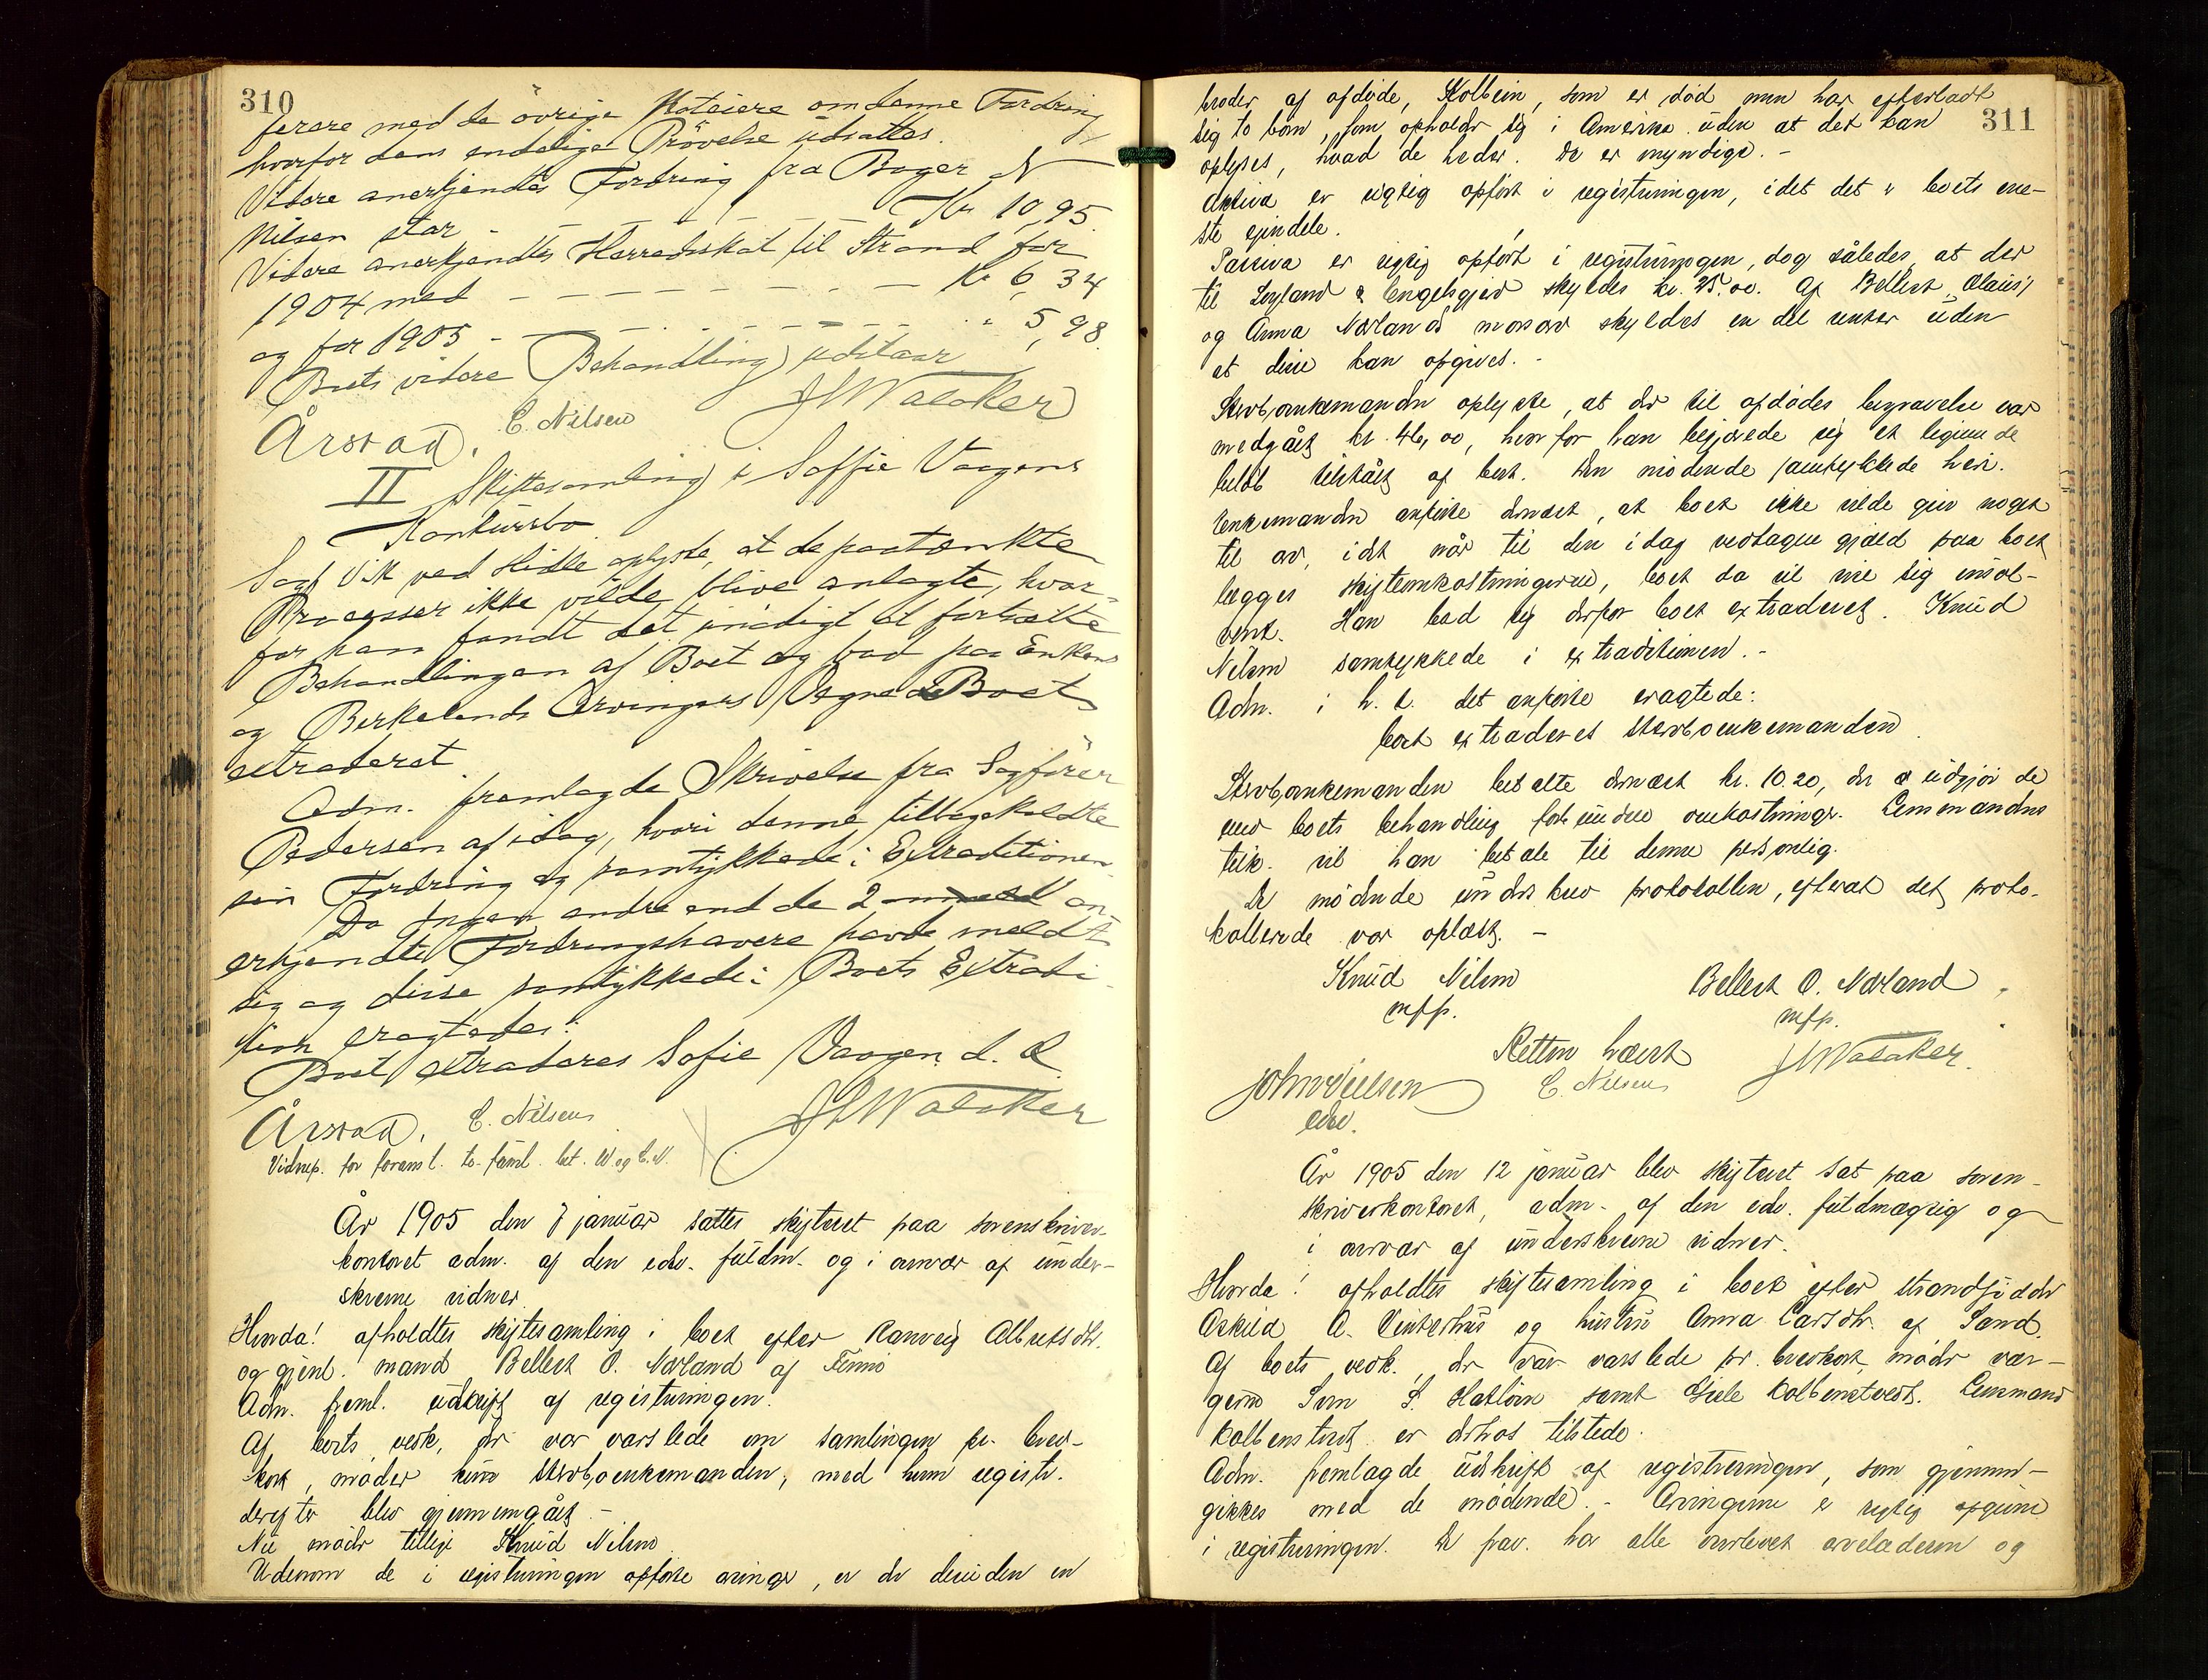 310
ferere med de övrige Koteiere om denne Fordring
hvorfor dens endelige Prövelse udsattes.
Videre anerkjendtes Fordring fra Bager N
Nilsen stor - - - - - Kr 10,95.
Videre anerkjendtes Herredsskat til Strand for
1904 med - - - - - - - - Kr 6,34
og for 1905 - - - - - - - " 5,98.
Boets videre Behandling udstaar
Årstad. C. Nilsen JSWalaker
II Skiftesamling i Soffie Vaagens
Konkursbo
Sagf Vik ved Hidle oplyste, at de paatænkte
Processer ikke vilde blive anlagte, hvor-
for han fandt det unödigt at fortsætte
Behandlingen af Boet og bad paa Enkens
og Berkelands Arvingers Vegne Boet
extraderet
Adm. fremlagde Skrivelse fra Sagförer
Pedersen af idag, hvori denne tilbagekaldte
sin Fordring og samtykkede i Extraditionen
Da Ingen andre end de 2 an-
erkjendte Fordringshavere havde meldt
sig og disse samtykkede i Boets Extradi-
tion eragtedes:
Boet extraderes Sofie Vaagen. d. A
Årstad. C. Nilsen JSWalaker
Vidnep. for foranst. to saml. bet. W og C.N.
År 1905 den 7 januar sattes skifteret paa sorenskriver-
kontoret adm. af den edsv. fuldm. og i overvær af under-
skrevne vidner.
Hvorda! afholdtes skiftesamling i boet efter Ranveig Albretsdtr.
og gjenl. mand Bellest O. Nærland af Finnö
Adm. freml. udskrift af registreringen.
Af boets vedk., der var varslede om samlingen pr. brev-
kort, möder kun sterboenkemanden, med hvem registr.
derefter blev gjennemgået. -
Nu möder tillige Knud Nilsen.
Udenom de i registreringen opförte arvinger, er der desuden en
311
broder af afdöde, Kolbein, som er död men har efterladt
sig to börn, som opholder sig i Amerika uden at det kan
oplyses, hvad de heder. De er myndige. -
Aktiva er rigtig opfört i registreringen, idet det er boets ene-
ste eiendele.
Passiva er rigtig opfört i registreringen, dog således, at der
til Löyland & Engelsgjerd skyldes kr. 25.00. Af Bellest, Olaus,
og Anna Nærland's morsarv skyldes en del renter uden
at disse kan opgives. -
Sterboenkemanden oplyste, at der til afdödes begravelse var
medgået kr. 46,00, hvorfor han begjærede sig et lignende
belöb tilstået af boet. Den mödende samtykkede heri.
Enkemanden anförte dernæst, at boet ikke vilde give noget
til arv, idet når til den idag vedtagne gjæld paa boet
lægges skifteomkostningerne, boet da vil vise sig insol-
vent. Han bad sig derfor boet extraderet. Knud
Nilsen samtykkede i extraditionen. -
Adm. i h. t. det anförte eragtede:
boet extraderes sterboenkemanden.
Sterboenkemanden betalte dernæst kr. 10.20, der udgjör de
med boets behandling forbundne omkostninger. Lensmandens
tilk. vil han betale til denne personlig.
De mödende underskrev protokollen, efterat det proto-
kollerede var oplæst. -
Knud Nilsen Bellest O. Nærland
mfp. mfp.
Retten hævet
JohnNielsen C. Nilsen JSWalaker
edsv.
År 1905 den 12 januar blev skifteret sat paa soren-
skriverkontoret, adm. af den edsv. fuldmægtig og
i overvær af underskrevne vidner.
Hvorda! afholdtes skiftesamling i boet efter strandsidder
Askild A. Vinterhus og hustru Anna Larsdtr. af Sand.
Af boets vedk., der var varslede pr. brevkort möder vær-
gerne Sven S. samt Kolbenstvedt. Lensmand
Kolbenstvedt er derhos tilstede.
Adm. fremlagde udskrift af registreringen, som gjennem-
gikkes med de mödende. - Arvingerne er rigtig opgivne
i registreringen. De har alle overlevet arveladeren og